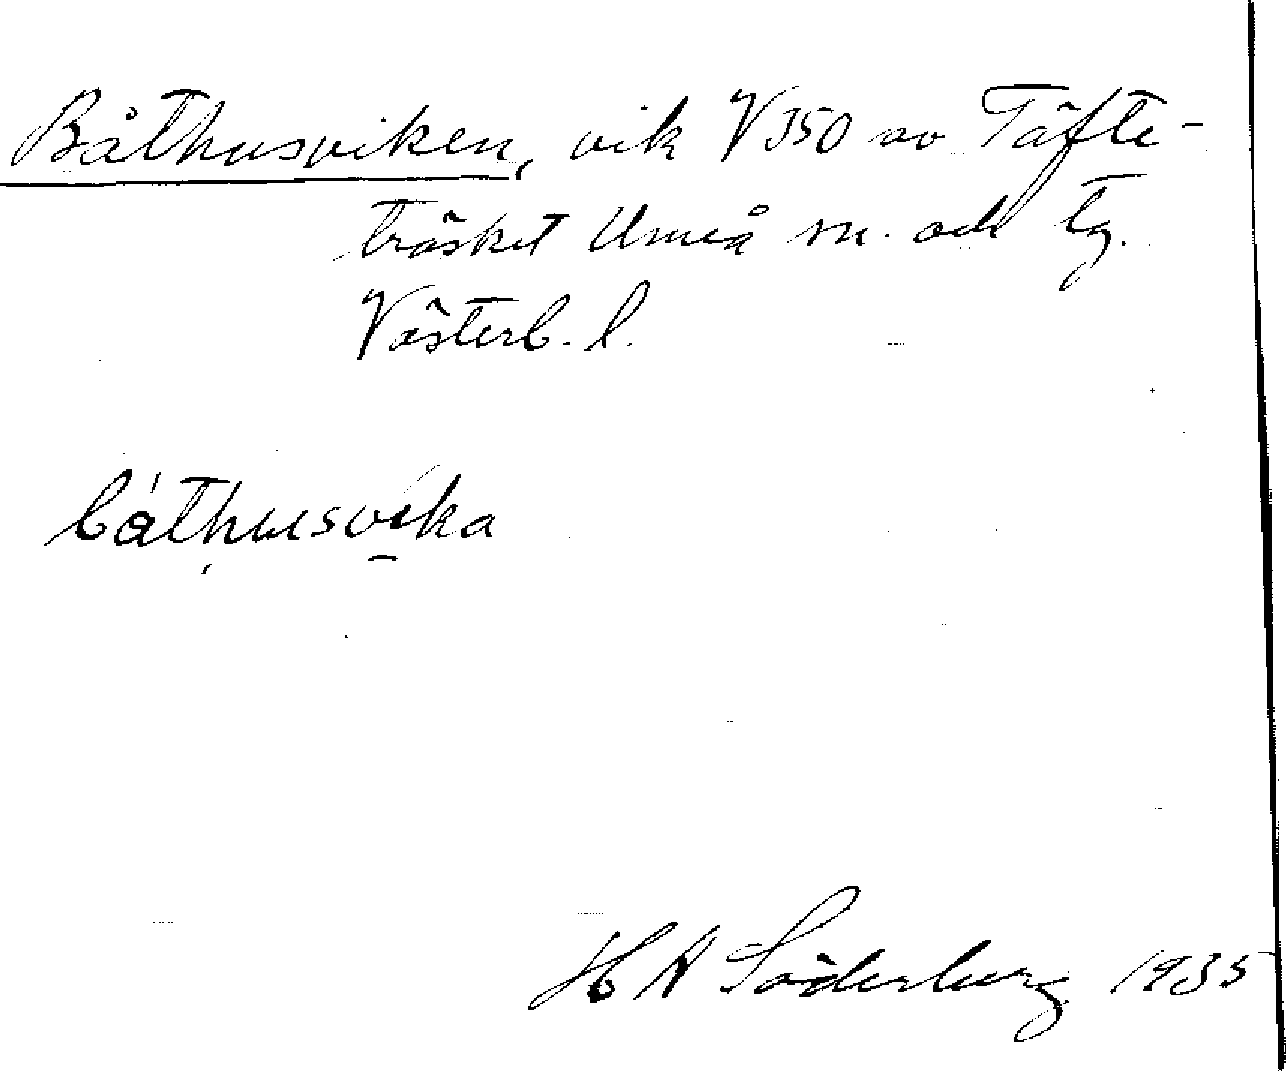 Båthusviken, vik V 350 av Täfte-
träsket Umeå sn. och tg.
Västerb. l.
båthusvika
H A Söderberg 1935